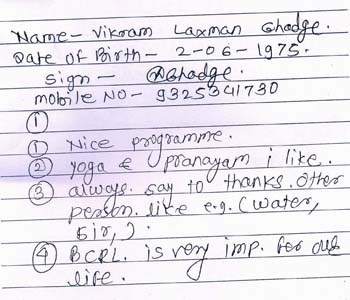 Name - Vikram Laxman Ghadge.
Date of Birth - 2-06-1975.
Sign - Ghadge.
mobile NO - 9325341730
①
① Nice programme.
② Yoga & pranayam i like.
③ always. say to thanks. Other
person. like e.g. (Water,
Sir,).
④ BCRL. is very imp. for our
life.